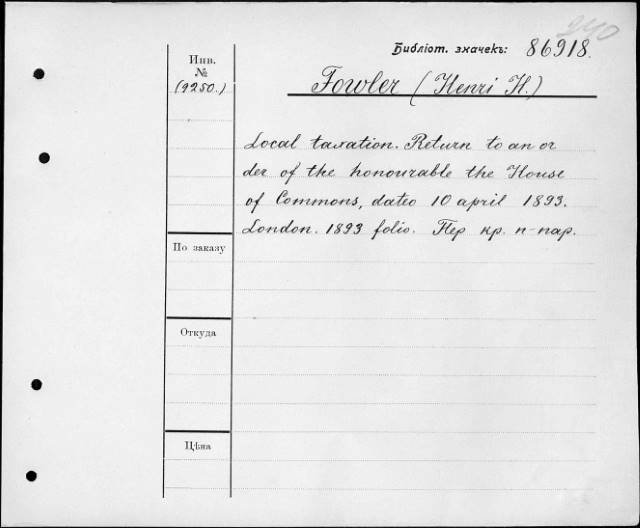 240
Библіот. значекъ: 86918.
Инв.
№
(9250.)
Fowler (Henri H.)
Local taxation. Return to an or
der of the honourable the House
of Commons, dateo 10 april 1893.
London. 1893 folio. Пер кр. п-пар.
По заказу
Откуда
Цѣна